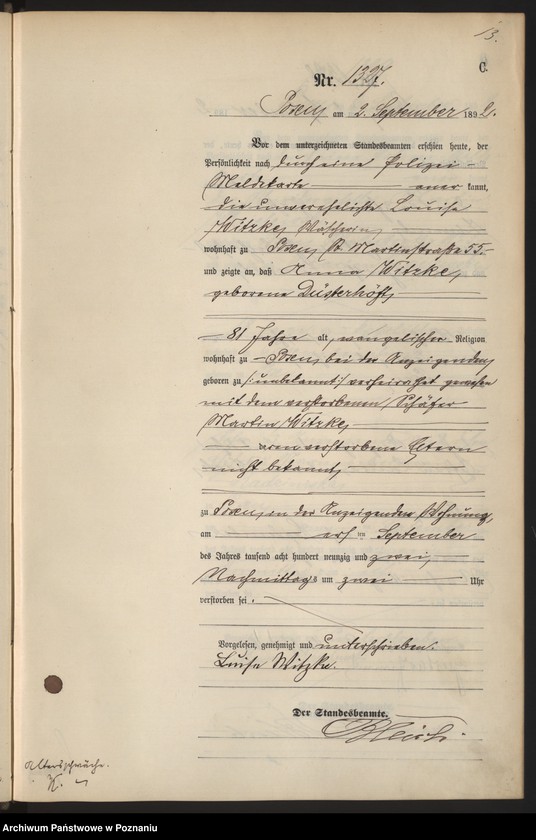 13.
C.
Nr. 1327.
Posen am 2. September 1892.
Vor dem unterzeichneten Standesbeamten erschien heute, der
Persönlichkeit nach durch eine Polizei-
Meldekarte anerkannt,
die unverehelichte Louise
Witzke, Wäscherin,
wohnhaft zu Posen, St. Martinstraße 55.
und zeigte an, daß Anna Witzke,
geborene Düsterhöft,
81 Jahre alt, evangelischer Religion
wohnhaft zu Posen, bei der Anzeigenden,
geboren zu /:unbekannt:/ verheirathet gewesen
mit dem verstorbenen Schäfer
Martin Witzke,
deren verstorbene Eltern
nicht bekannt,
zu Posen, in der Anzeigenden Wohnung,
am ersten September
des Jahres tausend acht hundert neunzig und zwei,
Nachmittags um zwei Uhr
verstorben sei.
Vorgelesen, genehmigt und unterschrieben.
Luise Witzke.
Der Standesbeamte.
Altersschwäche.
Archiwum Państwowe w Poznaniu